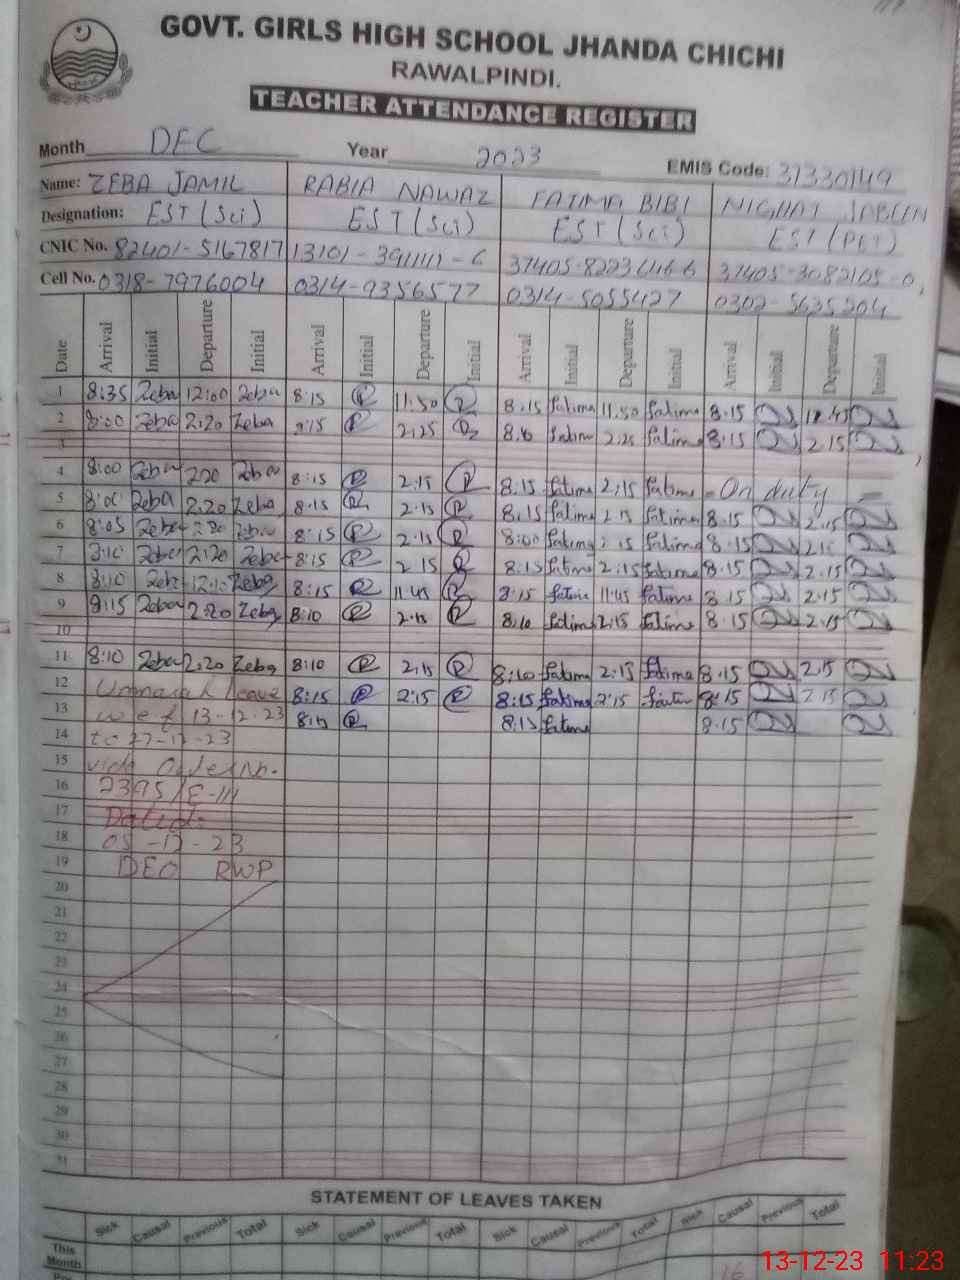 GOVT. GIRLS HIGH SCHOOL JHANDA CHICHI
RAWALPINDI.
TEACHER ATTENDANCE REGISTER
Month DEC Year 2023 EMIS Code: 37330149
Name: ZEBA JAMIL RABIA NAWAZ FATIMA BIBI NIGHAT JABEEN
Designation: EST (Sci) EST (Sci) EST (Sci) EST (PET)
CNIC No. 82401-5167817 13101-3911111-6 37405-3082105-0,
Cell No. 0318-7976004 0314-9356577 0314-5055427 0302-5635204
Date Arrival Initial Departure Initial Arrival Initial Departure Initial Arrival Initial Departure Initial Arrival Initial Departure Initial
1 8:35 Zeba 12:00 Zeba 8:15 R 11:50 R 8:15 Fatima 11.50 Fatima 8.15 12.45
2 8:00 Zeba 2.20 Zeba 8:15 R 2.25 R Fatima 2.25 Fatima 8:15 2.15
3
4 8:00 Zeba 2.20 Zeba 8:15 R 2.15 R 8.15 Fatima 2:15 Fatima - On duty -
5 8:00 Zeba 2.20 Zeba 8.15 R 2.15 R 8.15 Fatima 2.15 Fatima 8.15 2.15
6 8:05 Zeba Zeba 8:15 R 2.15 R 8:00 Fatima 2.15 Fatima 8.15
7 8:10 Zeba 2:20 Zeba 8:15 R 2.15 R 8:15 Fatima 2:15 Fatima 8.15 2.15
8 8:10 Zeba Zeba 8:15 R 11.45 R 8:15 Fatima 11.45 Fatima 8.15 2.15
9 8:15 Zeba 2:20 Zeba 8:10 R 2.15 R 8:10 Fatima 2:15 Fatima 8.15 2.15
10
11 8:10 Zeba 2.20 Zeba 8:10 R 2.15 R 8:10 Fatima 2:15 Fatima 8.15 2.15
12 leave 8:15 R 2:15 R 8:15 Fatima 2:15 8:15 2.15
13 w e f 13-12-23 8:15 R 8:15 Fatima 8.15
14 to 27-12-23
15 vide Order No.
16 2395/E-III
17 Dated:
18 05-12-23
19 DEO RWP
20
21
22
23
24
25
26
27
28
29
30
31
STATEMENT OF LEAVES TAKEN
Sick Causal Previous Total Sick Causal Previous Total Sick Causal Previous Total Sick Causal Previous Total
This
Month
16
13-12-23 11:23